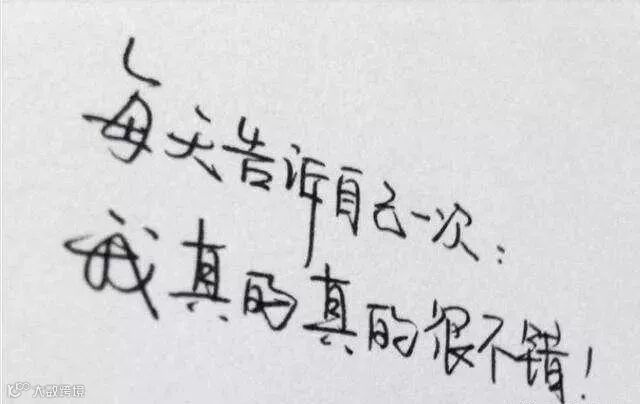 每天告诉自己一次:
我真的真的很不错!
大数跨境